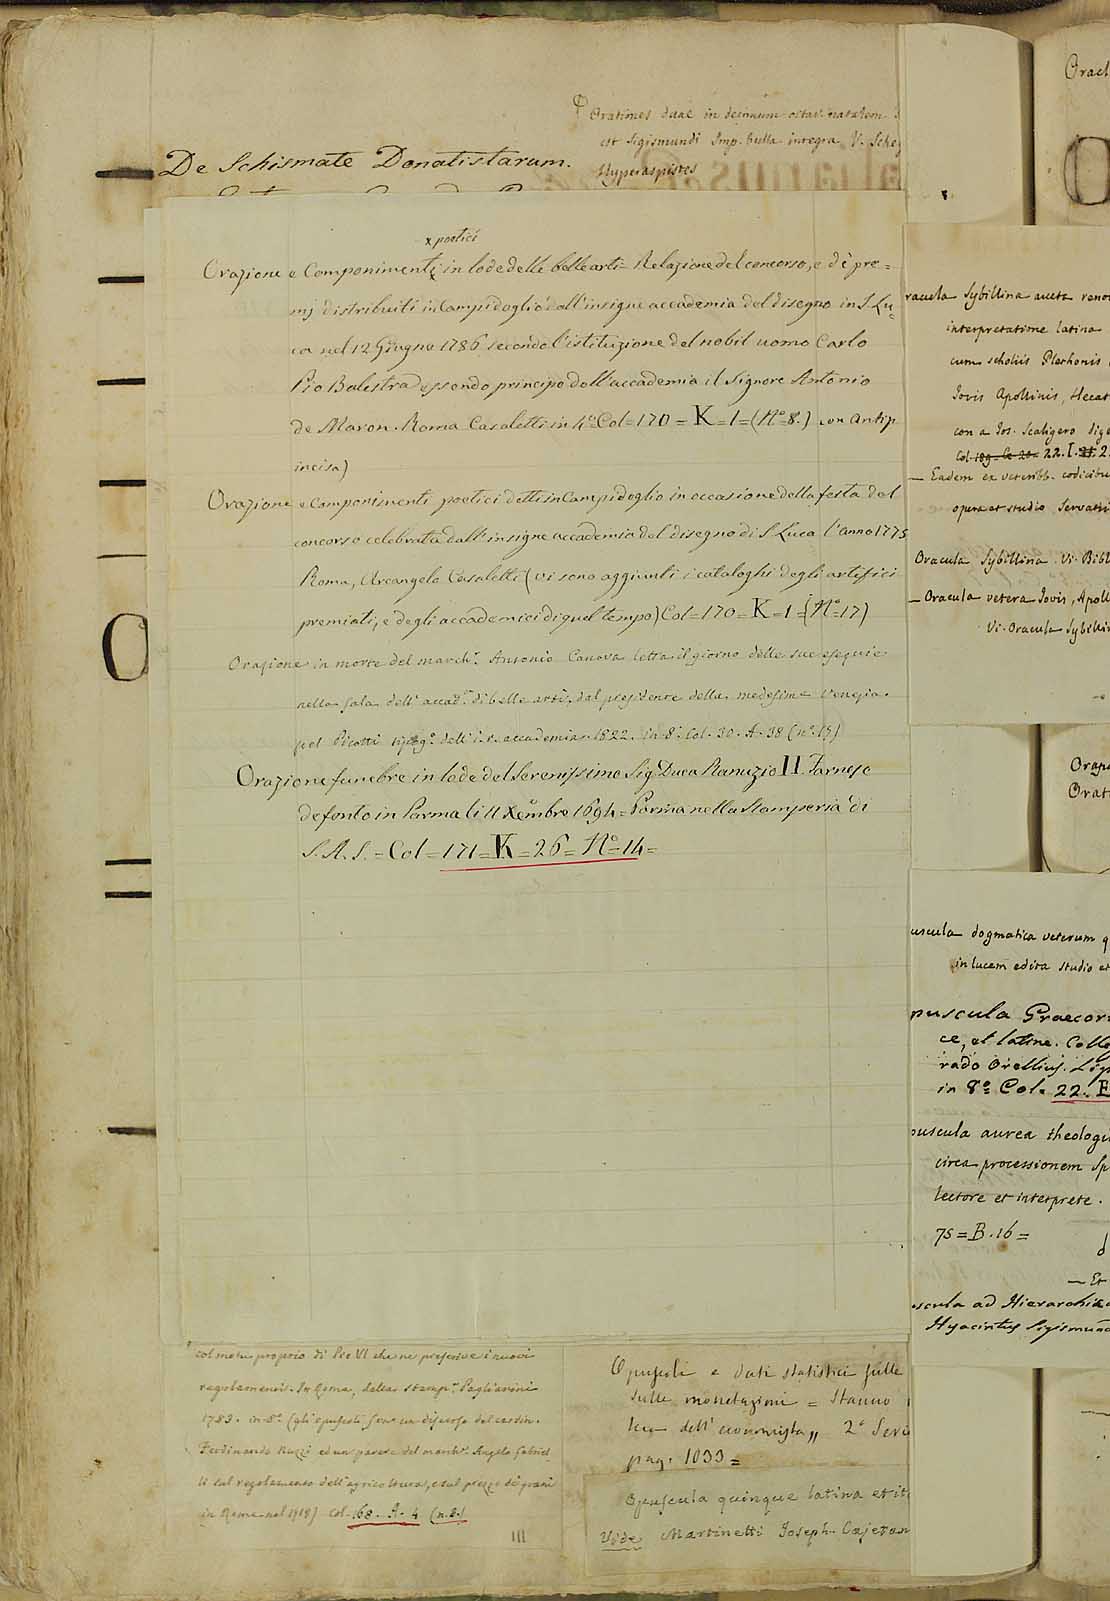 Orationes duae in decimum octav. natalem
est Sigismundi Imp. bulla integra V. Scheg
Hyperaspistes
De Schismate Donatistarum.
x poetici
Orazione e Componimenti x in lode delle belle arti = Relazione del concorso, e d'è pre=
mj distribuiti in Campidoglio dall'insigne accademia del disegno in S. Lu=
ca nel 12 Giugno 1786 secondo l'istituzione del nobil uomo Carlo
Pio Balestra essendo principe dell'accademia il Signore Antonio
de Maron. Roma Casaletti in 4º Col=170= K=1=(Nº 8.) con antip
incisa)
Orazione e Componimenti poetici detti in Campidoglio in occasione della festa del
concorso celebrata dall'insigne accademia del disegno di S. Luca l'anno 1775
Roma, Arcangelo Casaletti (vi sono aggiunti i cataloghi degli artefici
premiati, e degli accademici di quel tempo) Col=170=K=1=(Nº=17)
Orazione in morte del march.e Antonio Canova letta il giorno delle sue esequie
nella sala dell'accad.a di belle arti, dal presidente della medesima Venezia.
pel Picotti tipog.o dell'i. r. accademia. 1822. in 8º Col. 30. A. 38 (nº 19)
Orazione funebre in lode del Serenissimo Sig. Duca Ranuzio II. Farnese
defonto in Parma li 11 Xembre 1694=Parma nella Stamperia di
S. A. S. = Col=171=K=26=Nº=14=
col motu proprio di Pio VI che ne prescrive i nuovi
regolamenti. In Roma, dalla stamp.a Pagliarini
1783. in 8º (gli opuscoli sono un discorso del cardin.
Ferdinando Nuzzi ed un parere del march.e Angelo Gabriel
li sul regolamento dell'agricoltura, e sul prezzo de' grani
in Roma nel 1718) Col. 168. A. 4 (n. 8.)
III
Opuscoli e dati statistici sulle
sulle monetazioni = Stanno
teca dell'economista,, 2ª Seri
pag. 1033=
Opuscula quinque latina et it
Vide Martinetti Joseph. Cajetan
Oracl
O
racula Sybillina aucta reno
interpretatione latina
cum scholiis Plethonis
Jovis Apollinis, Hecat
con a Jos. Scaligero dige
Col. 189. 22. I. 2
— Eadem ex veterib. codicibu
opera et studio Servatii
Oracula Sybillina. Vi. Bibl
— Oracula vetera Jovis, Apoll
Vi. Oracula Sybilli
Orat
uscula dogmatica veterum q
in lucem edita studio et
puscula Graecor
ce, et latine. Colle
rado Orellius. Lip
in 8º= Col. 22. E
puscula aurea theologi
circa processionem Sp
lectore et interprete.
75=B.16=
— Et
uscula ad Hierarchia
Hyacintus Sigismun